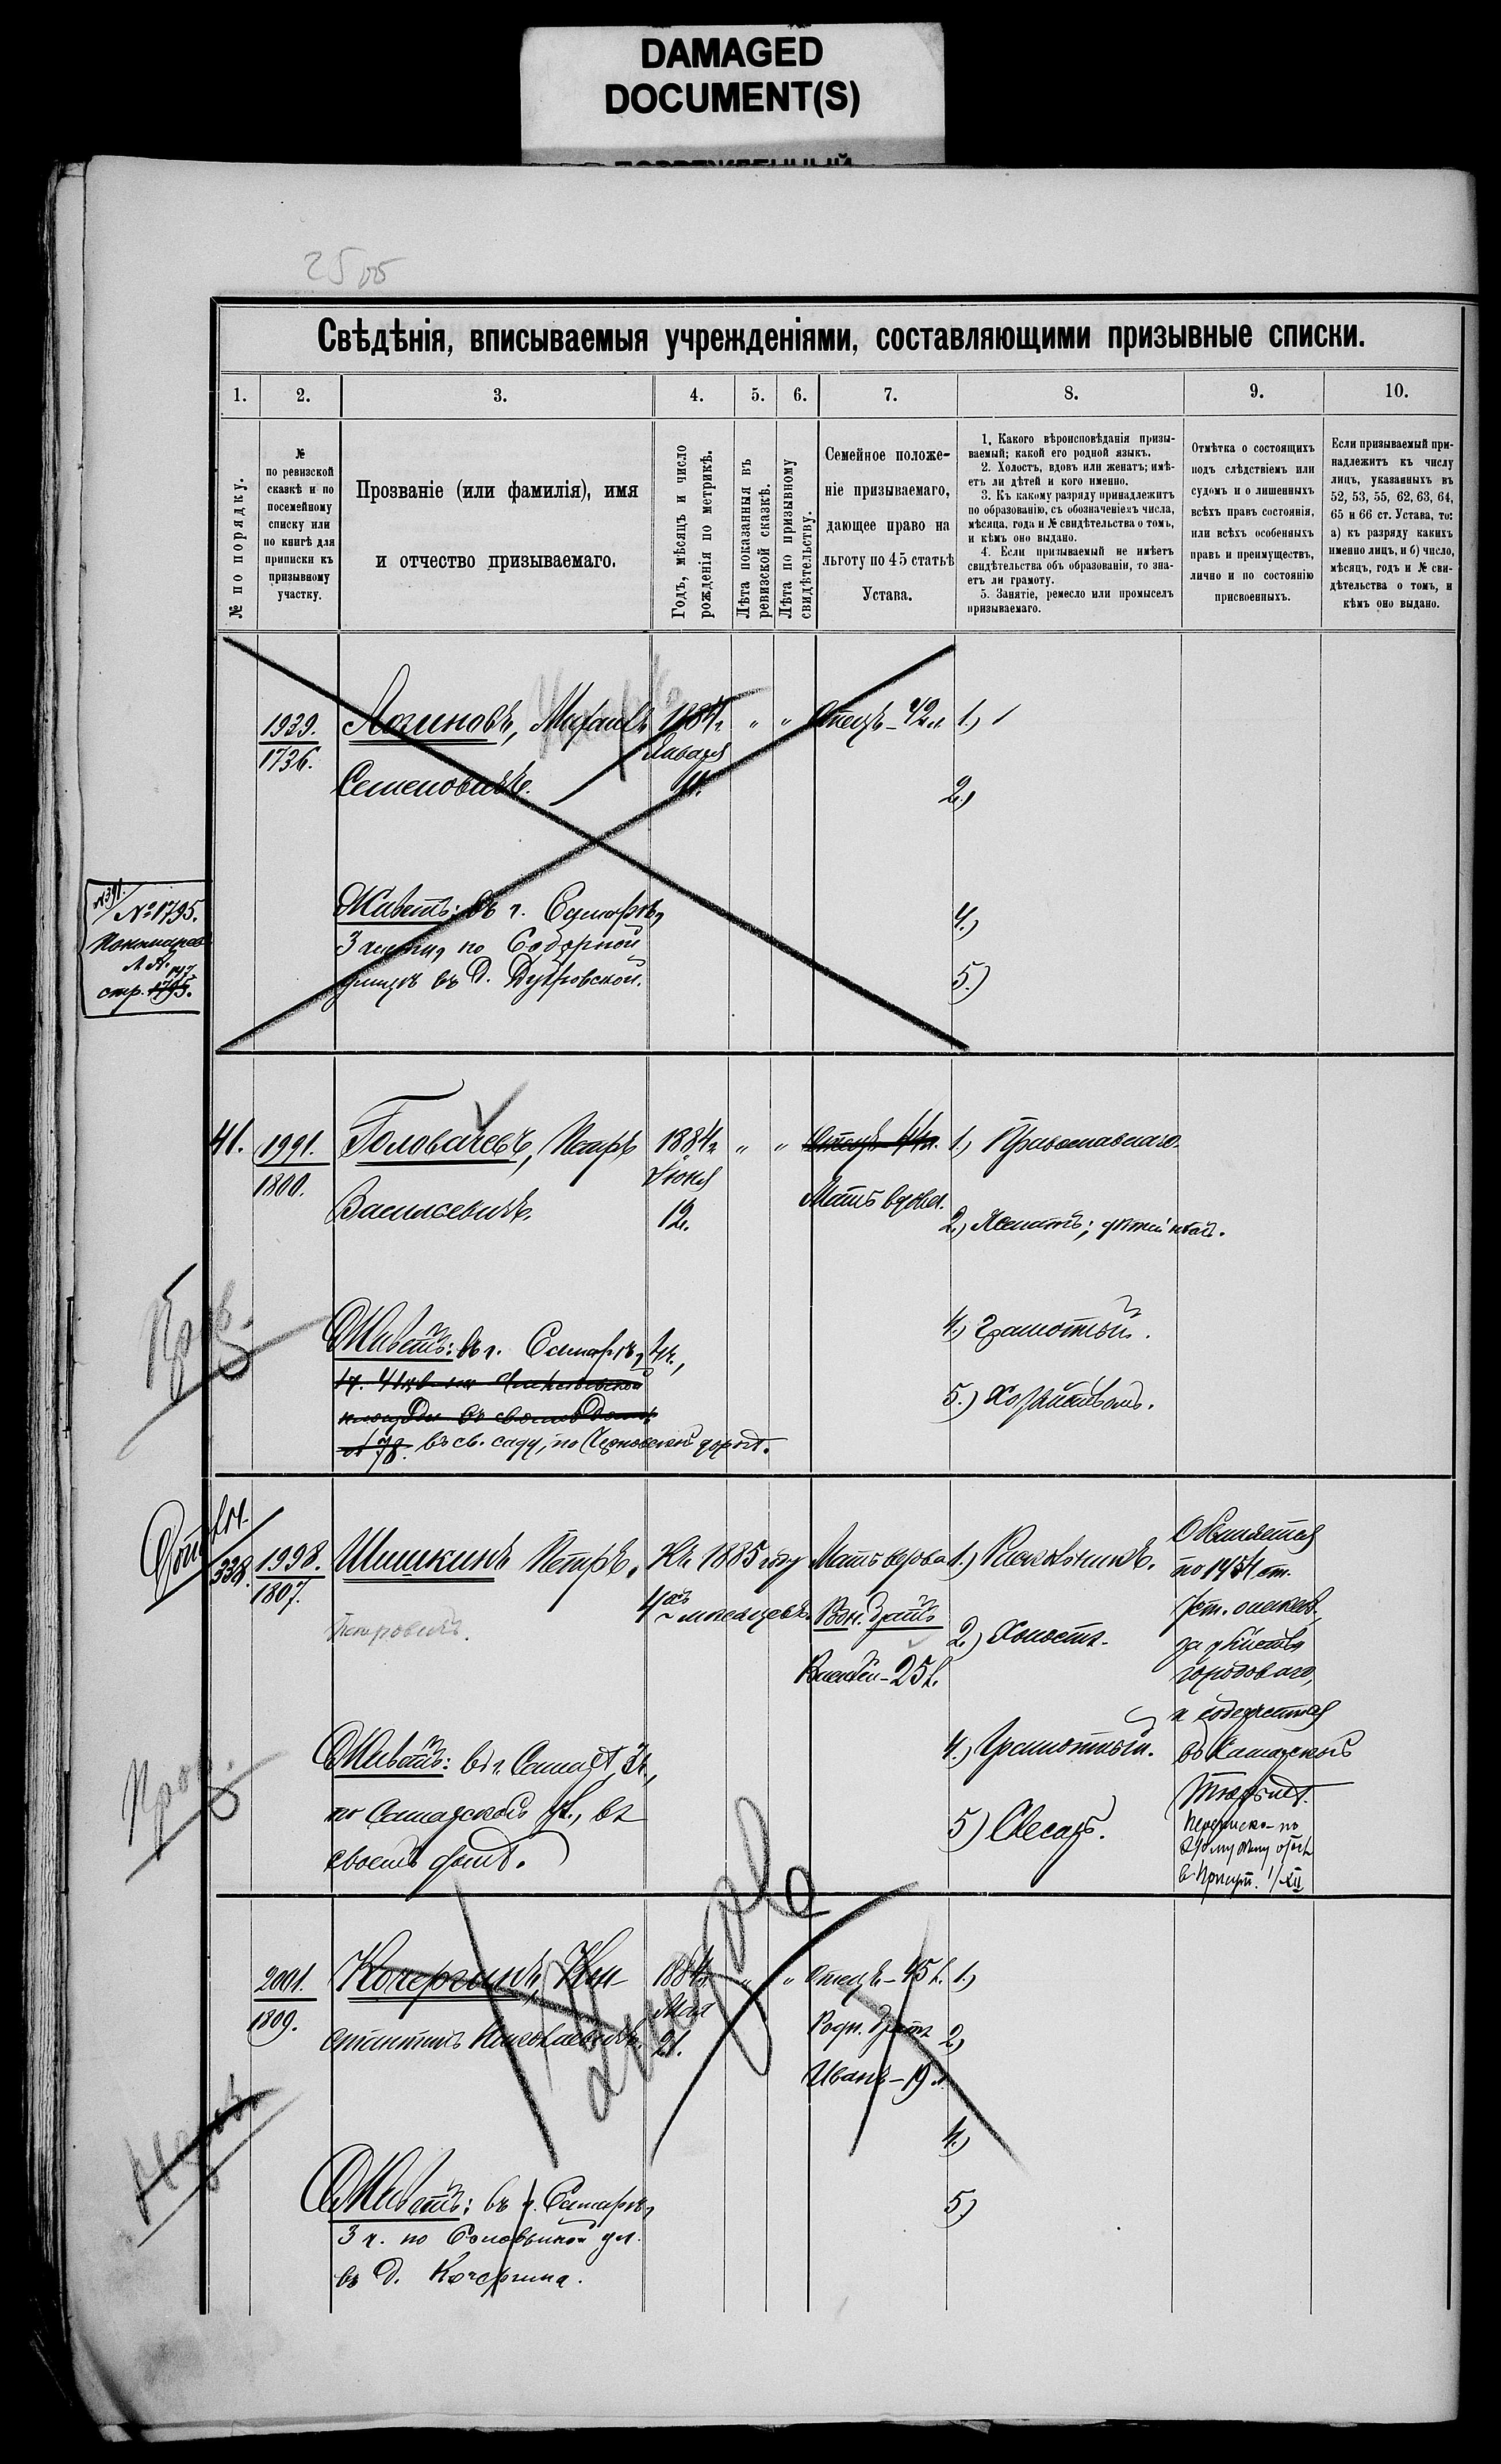 DAMAGED
DOCUMENT(S)
25 об
Свѣдѣнія, вписываемыя учрежденіями, составляющими призывные списки.
1. 2. 3. 4. 5. 6. 7. 8. 9. 10.
№ по порядку.
№
по ревизской
сказкѣ и по
посемейному
списку или
по книгѣ для
приписки къ
призывному
участку.
Прозваніе (или фамилія), имя
и отчество призываемаго.
Годъ, мѣсяцъ и число
рожденія по метрикѣ.
Лѣта показанныя въ
ревизской сказкѣ.
Лѣта по призывному
свидѣтельству.
Семейное положе-
ніе призываемаго,
дающее право на
льготу по 45 статьѣ
Устава.
1. Какого вѣроисповѣданія призы-
ваемый; какой его родной языкъ.
2. Холостъ, вдовъ или женатъ; имѣ-
етъ ли дѣтей и кого именно.
3. Къ какому разряду принадлежитъ
по образованію, съ обозначеніемъ числа,
мѣсяца, года и № свидѣтельства о томъ,
и кѣмъ оно выдано.
4. Если призываемый не имѣетъ
свидѣтельства объ образованіи, то зна-
етъ ли грамоту.
5. Занятіе, ремесло или промыселъ
призываемаго.
Отмѣтка о состоящихъ
подъ слѣдствіемъ или
судомъ и о лишенныхъ
всѣхъ правъ состоянія,
или всѣхъ особенныхъ
правъ и преимуществъ,
лично и по состоянію
присвоенныхъ.
Если призываемый при-
надлежитъ къ числу
лицъ, указанныхъ въ
52, 53, 55, 62, 63, 64,
65 и 66 ст. Устава, то:
а) къ разряду какихъ
именно лицъ, и б) число,
мѣсяцъ, годъ и № сви-
дѣтельства о томъ, и
кѣмъ оно выдано.
1939. Логиновъ, Михаилъ 1884г. " " Отецъ - 42л 1.)
1736. Января
Семеновичъ. 2.)
№ 1795.
стр. 1795.
Живетъ: въ г. Самарѣ,
3 части, по Соборной 4.)
улицѣ въ д. 5.)
41. 1991. Головачевъ, Петръ 1884г. " " Отецъ 1.) Православнаго.
1800. Іюня
Васильевичъ. 12. Мать вдова. 2.) Женатъ; дѣтей нѣтъ.
Живетъ: въ г. Самарѣ, 4ч., 4.) Грамотный.
№ 78. въ св. саду, по дорогѣ. 5.) Хозяйствомъ.
338. 1998. Шишкинъ Петръ. Къ 1885 году Мать вдова 1.) Раскольникъ. Обвиняется
1807. по 1454 ст.
Петровичъ. мѣсяцевъ. братъ 2.) Холостъ. Улож. о наказ.
25 л. за убійство
городоваго,
и содержится
Живетъ: въ г. Самарѣ, 3ч., 4.) Грамотный. въ Самарской
по Самарской ул., въ тюрьмѣ.
своемъ домѣ. 5) Слесарь. Переписка по
2001. Кочергинъ, Кон- 1884г. " " Отецъ - 45 л. 1.)
1809. Мая
стантинъ Николаевичъ. 21. Родн. братъ 2)
Иванъ - 19 л.
4.)
Живетъ: въ г. Самарѣ, 5.)
3 ч. по ул.
въ д. Кочергина.